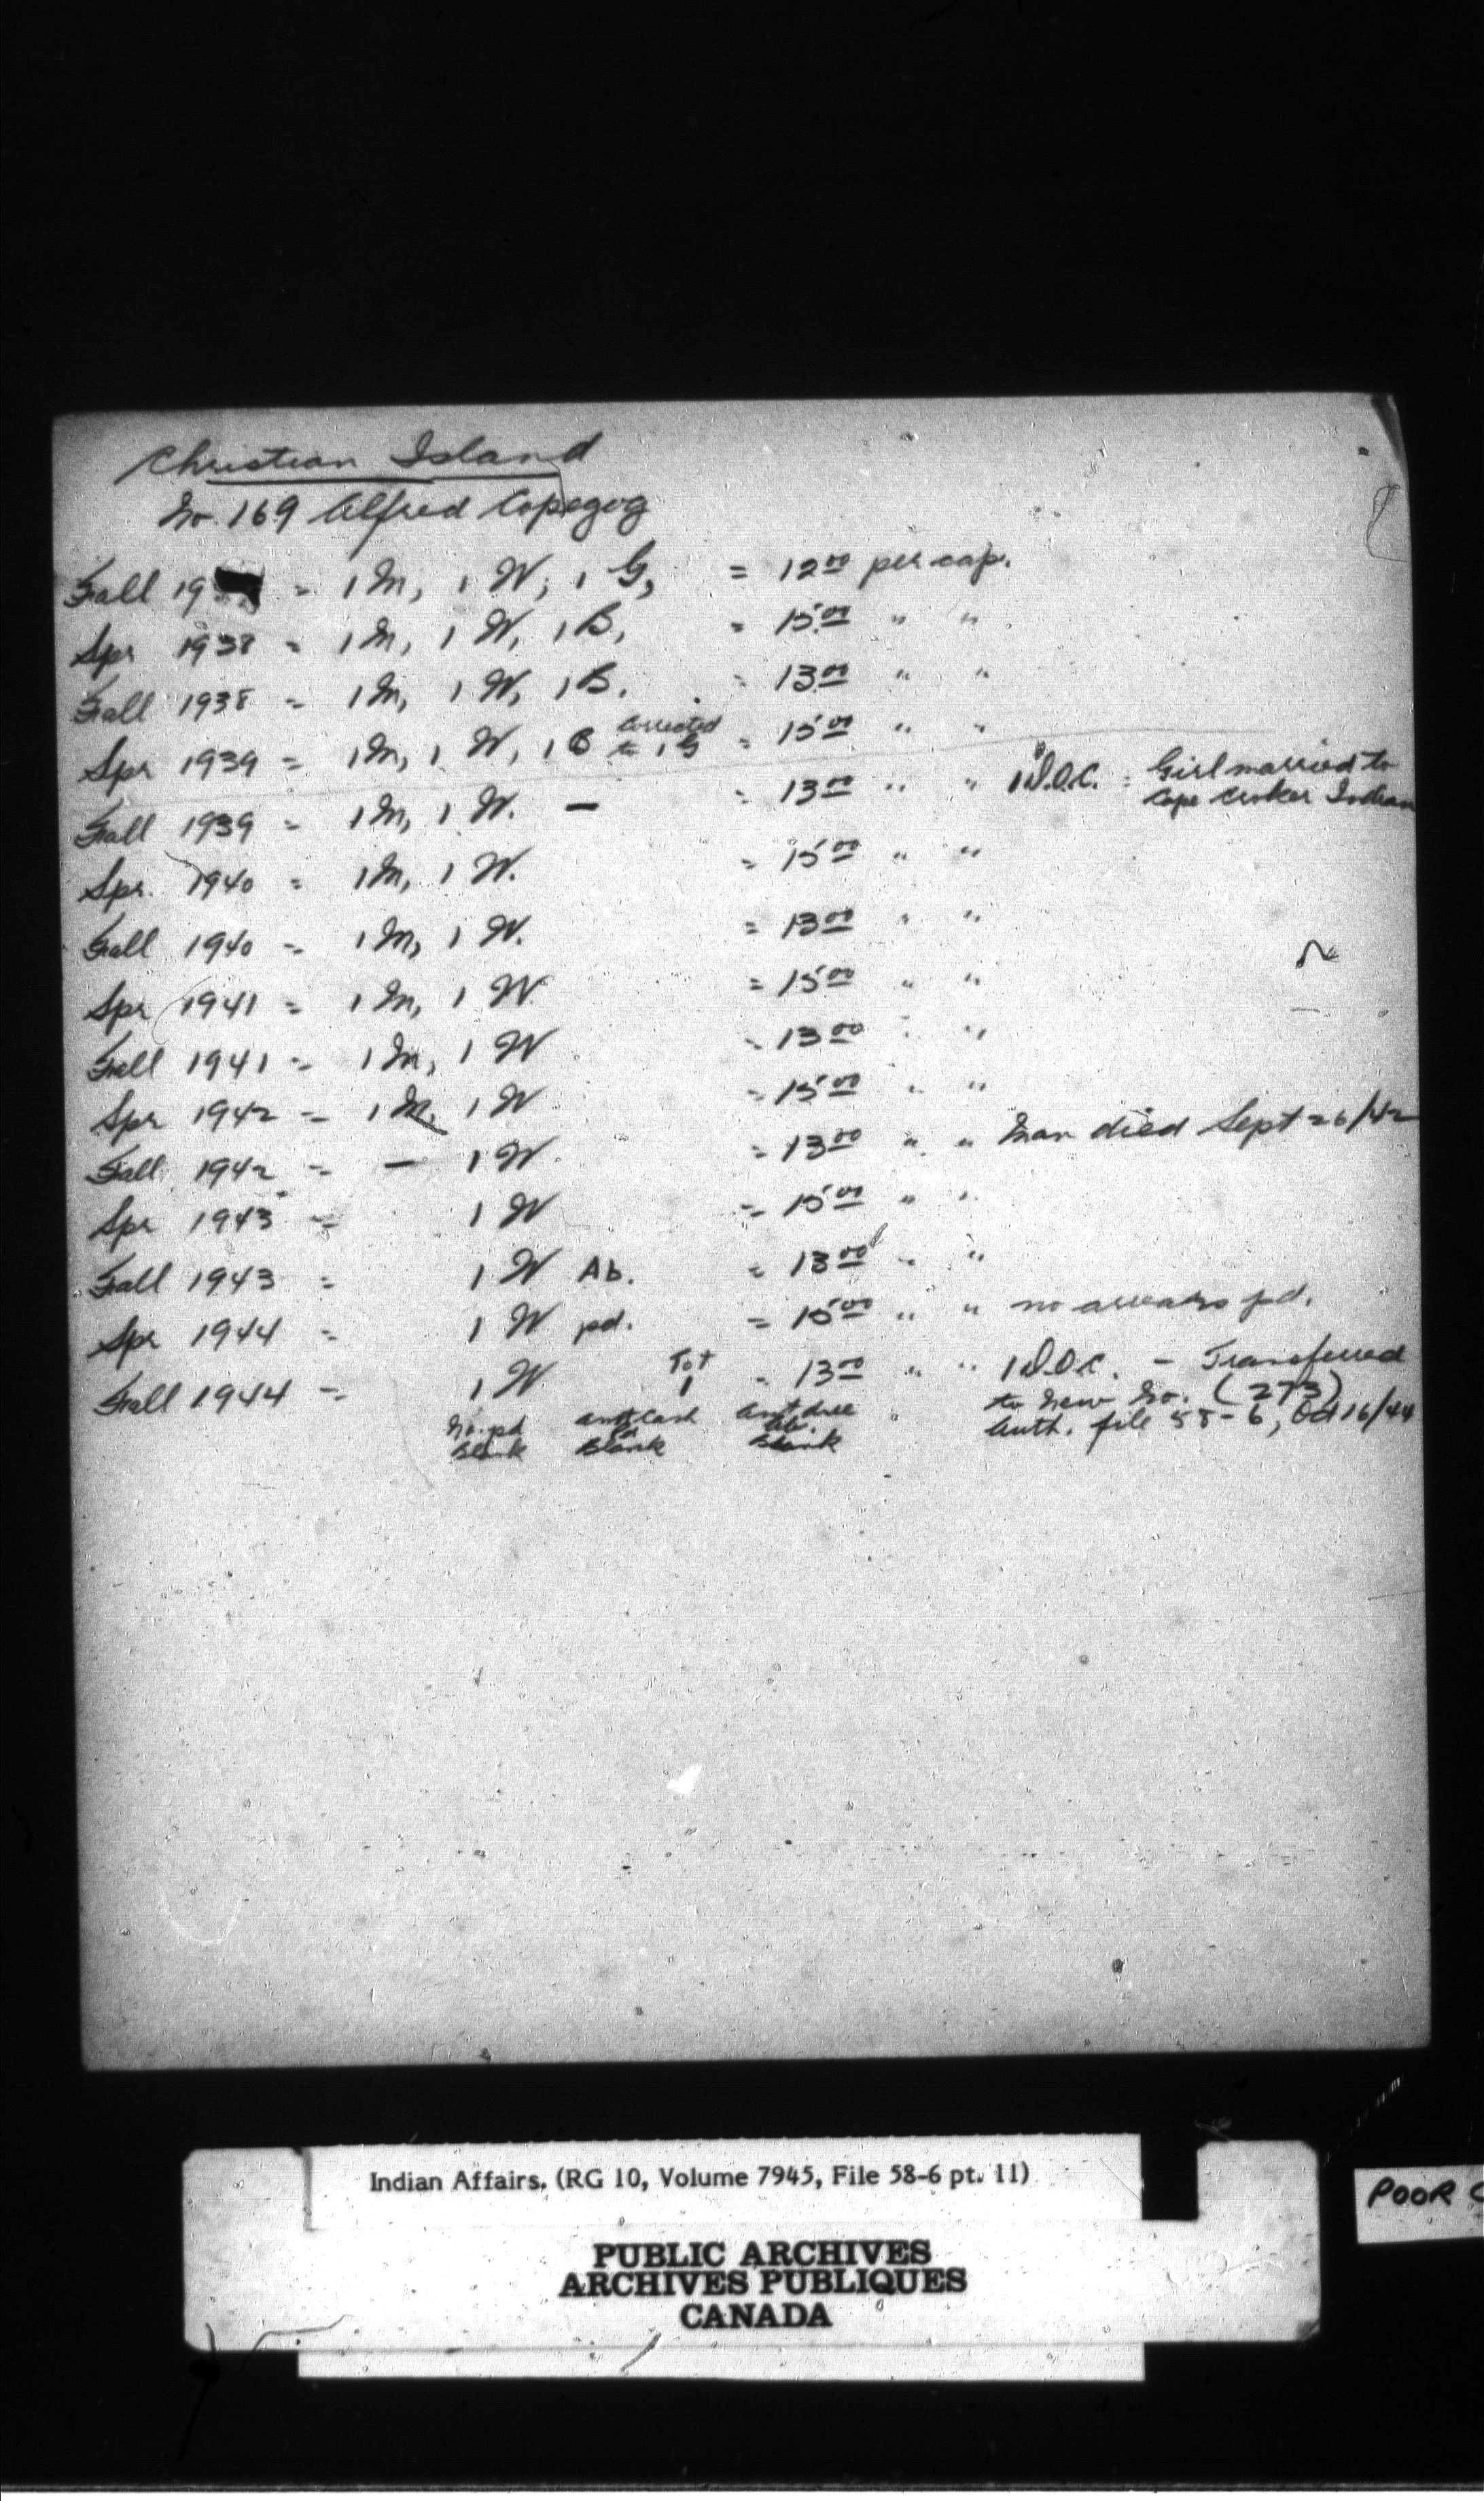 Christian Island
No. 169 Alfred Copegog
Fall 19 = 1 M, 1 W, 1 G, = 12.00 per cap.
Spr 1938 = 1 M, 1 W, 1 B, = 15.00 " "
Fall 1938 = 1 M, 1 W, 1 B. = 13.00 " "
Spr 1939 = 1 M, 1 W, 1 B corrected to 1 G = 15.00 " "
Fall 1939 = 1 M, 1 W. — = 13.00 " " 1 D.O.C. = Girl married to
Cape Croker Indian
Spr. 1940 = 1 M, 1 W. = 15.00 " "
Fall 1940 = 1 M, 1 W. = 13.00 " "
Spr 1941 = 1 M, 1 W = 15.00 " "
Fall 1941 = 1 M, 1 W = 13.00 " "
Spr 1942 = 1 M, 1 W = 15.00 " "
Fall 1942 = — 1 W. = 13.00 " " Man died Sept 26/42
Spr 1943 = 1 W = 15.00 " "
Fall 1943 = 1 W Ab. = 13.00 " "
Spr 1944 = 1 W pd. = 15.00 " " no arrears pd.
Fall 1944 = 1 W Tot 1 = 13.00 " " 1 D.O.C. — Transferred
to new No. (273)
Auth. file 58-6, Oct 16/44
No. pd Blank
Amt Cash pd Blank
Amt due Ab. Blank
Indian Affairs. (RG 10, Volume 7945, File 58-6 pt. 11)
PUBLIC ARCHIVES
ARCHIVES PUBLIQUES
CANADA
POOR